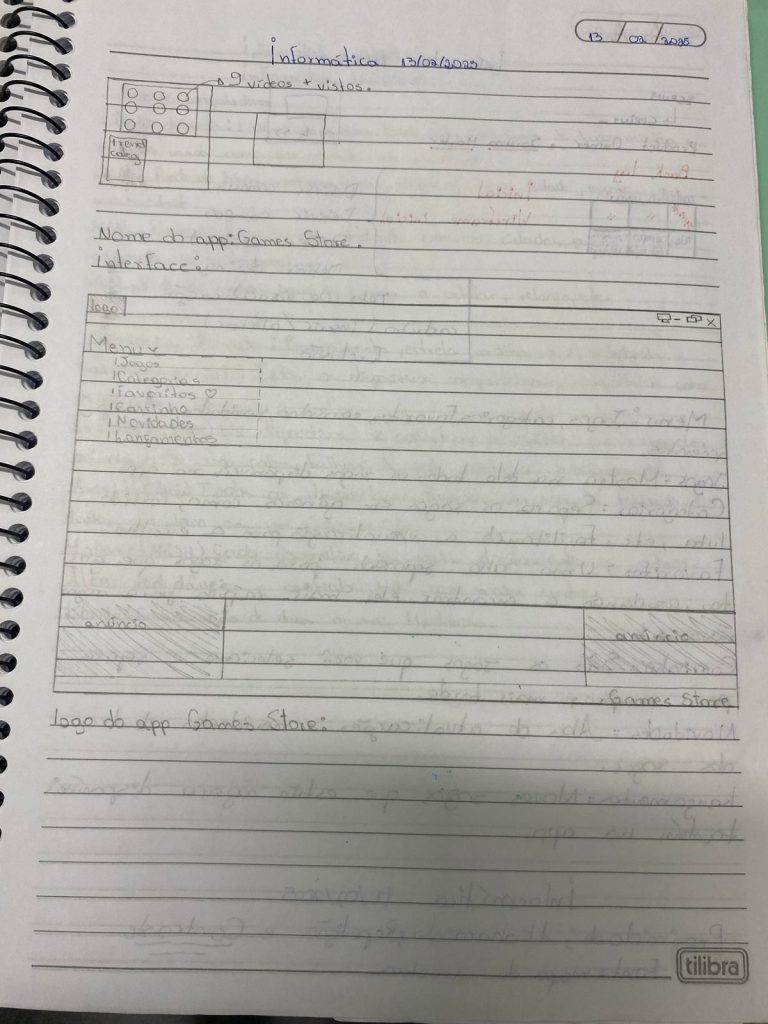 13 / 02 / 2025
Informática 13/02/2025
9 vídeos + vistos.
trend
categ
Nome do app: Games Store.
interface:
logo
Menu
Jogos
Categorias
Favoritos ♡
Carrinho
Novidades
Lançamentos
anúncio
anúncio
Games Store
logo do app Games Store:
tilibra